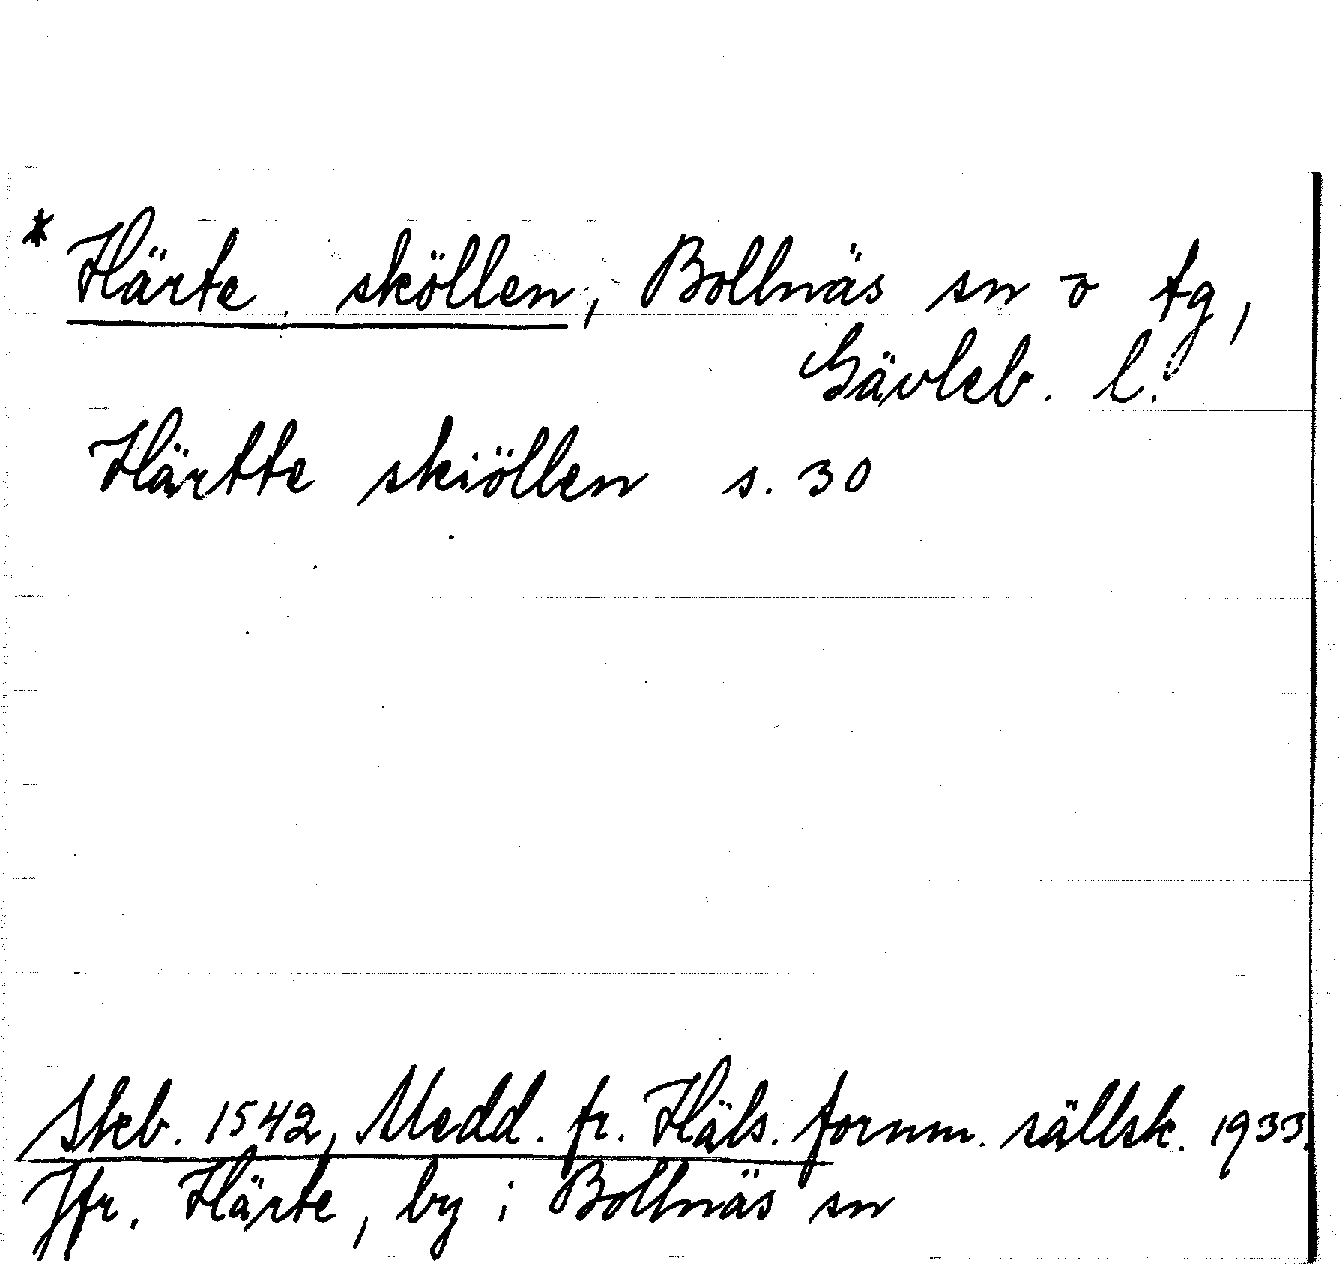 * Härte sköllen, Bollnäs sn o tg,
Gävleb. l.
Härtte skiöllen s. 30
Skb. 1542, Medd. fr. Häls. fornm. sällsk. 1933.
Jfr. Härte, by i Bollnäs sn